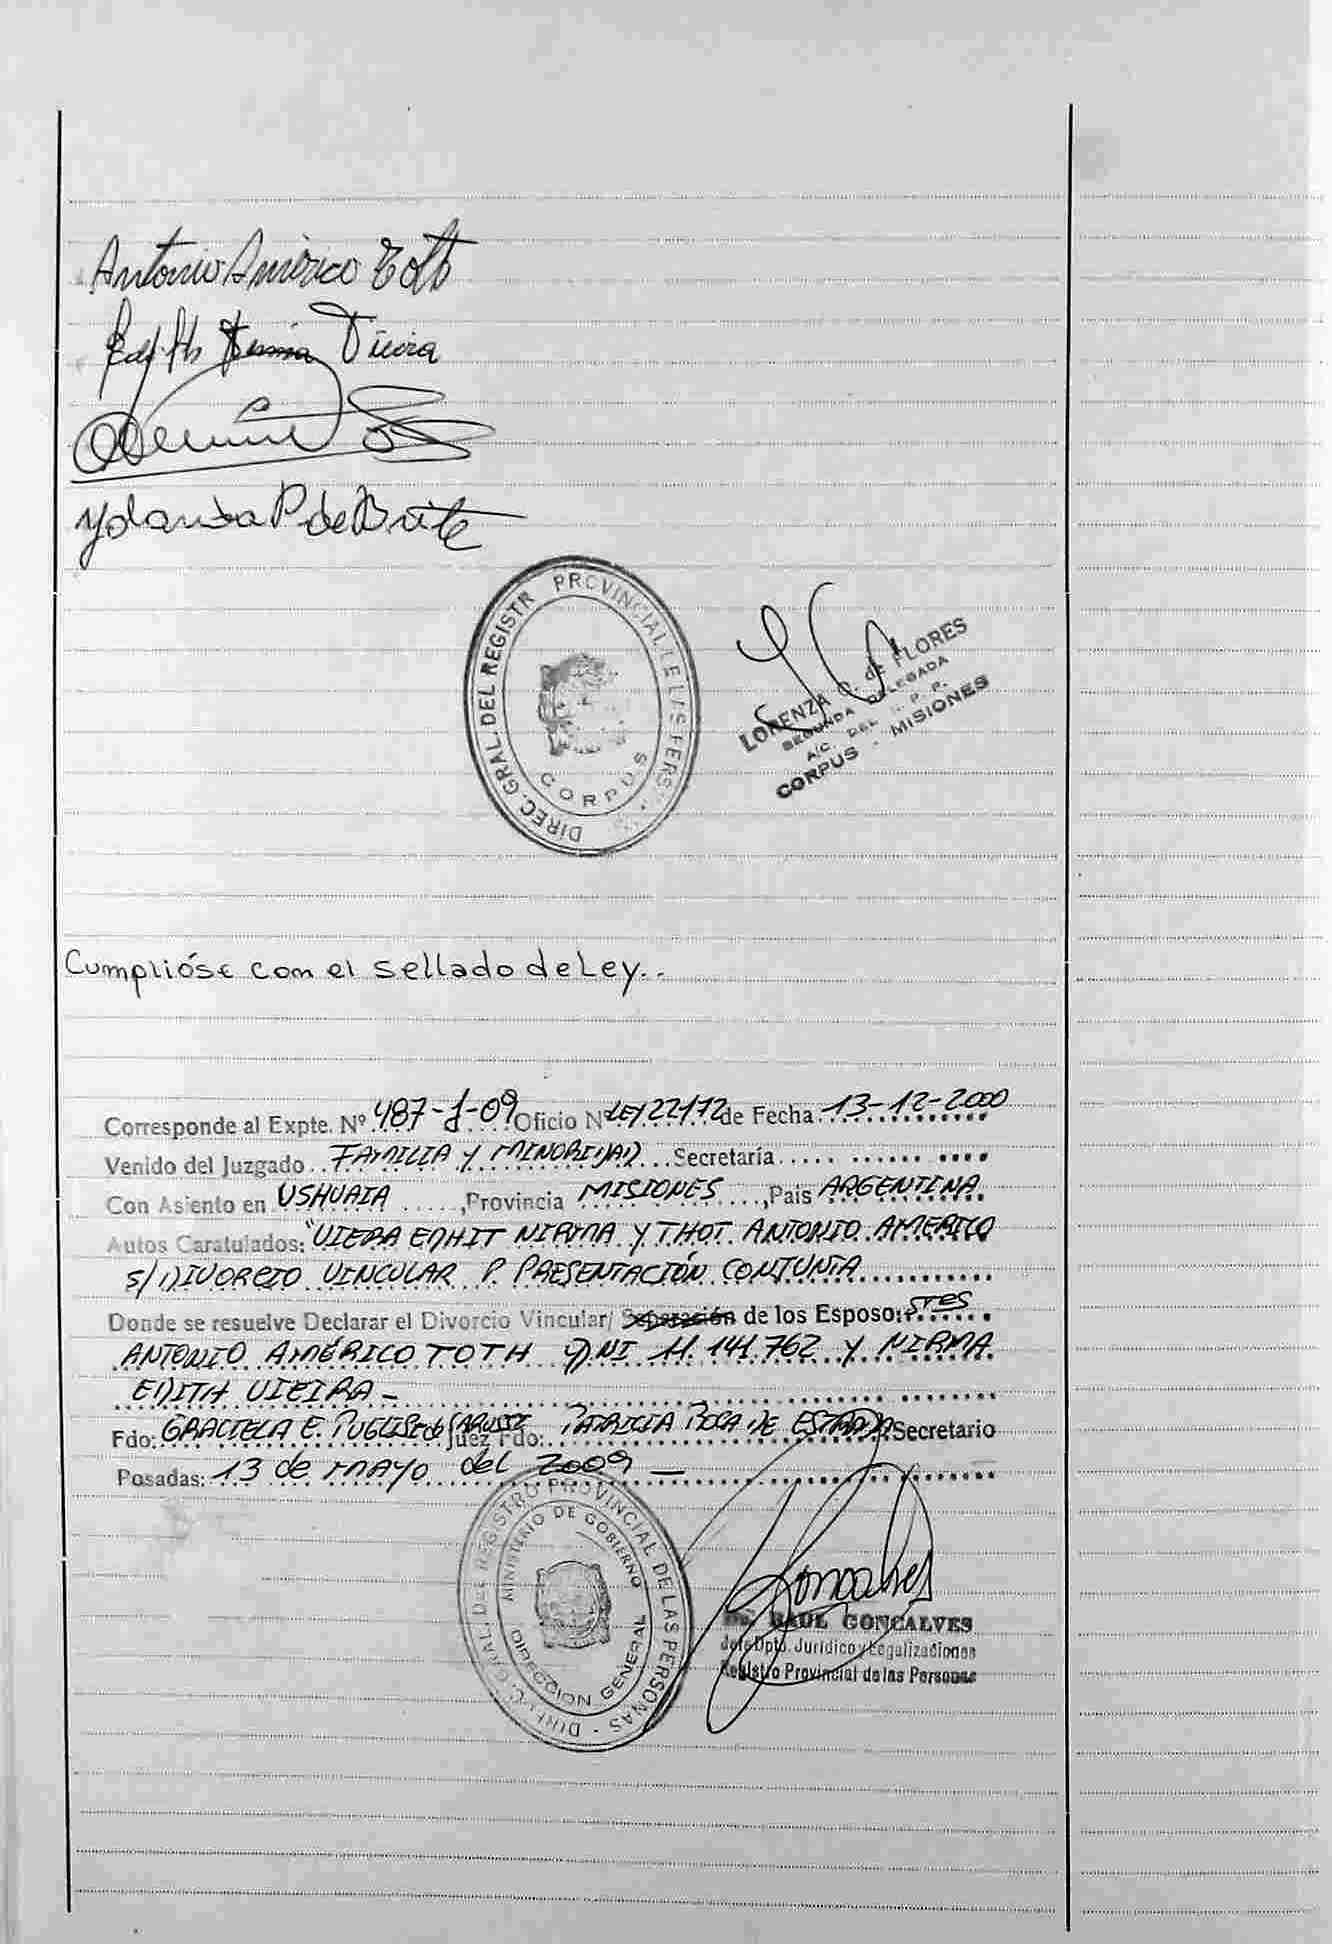 Antonio Américo Toth
Edith Vieira
Yolanda P de Brite
DIREC. GRAL. DEL REGISTR PROVINCIAL DE LAS PERS.
CORPUS
LORENZA C. de FLORES
SEGUNDA DELEGADA
A/C. DEL R. P. P.
CORPUS - MISIONES
Cumplióse con el sellado de Ley..
Corresponde al Expte. Nº 487-J-09 Oficio Nº LEY 22172 de Fecha 13-12-2000
Venido del Juzgado FAMILIA Y MINORIDAD Secretaría
Con Asiento en USHUAIA, Provincia MISIONES, Pais ARGENTINA
Autos Caratulados: "VIERA EDHIT NIRMA Y THOT ANTONIO AMERICO
S/ DIVORCIO VINCULAR P. PRESENTACIÓN CONJUNTA
Donde se resuelve Declarar el Divorcio Vincular/ Separación de los Esposo: Sres
ANTONIO AMÉRICO TOTH DNI 11.141.762 Y NIRMA
EDITH VIEIRA -
Fdo: GRACIELA E. PUGLISE de SARUSSI Juez Fdo: PATRICIA ROSA DE ESTRADA Secretario
Posadas: 13 de mayo del 2009 —
DIREC. GRAL. DEL REGISTRO PROVINCIAL DE LAS PERSONAS -
MINISTERIO DE GOBIERNO
DIRECCION GENERAL
Goncalves
Dr. RAUL GONCALVES
Jefe Dpto. Jurídico y Legalizaciones
Registro Provincial de las Personas